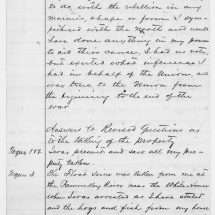 to do with the rebellion in any
manner, shape or form. I sym-
pathized with the North and would
have done anything in my power
to aid their cause, I had no vote,
but exerted what influence I
had in behalf of the Union, and
was true to the Union from
the beginning to the end of the
war
Answers to Revised Questions as
to the taking of the property
I was present and saw all my pro-
perty taken
The Flood Farm was taken from me at
the river near the
when was arrested as I have stated
and the hogs and from my home